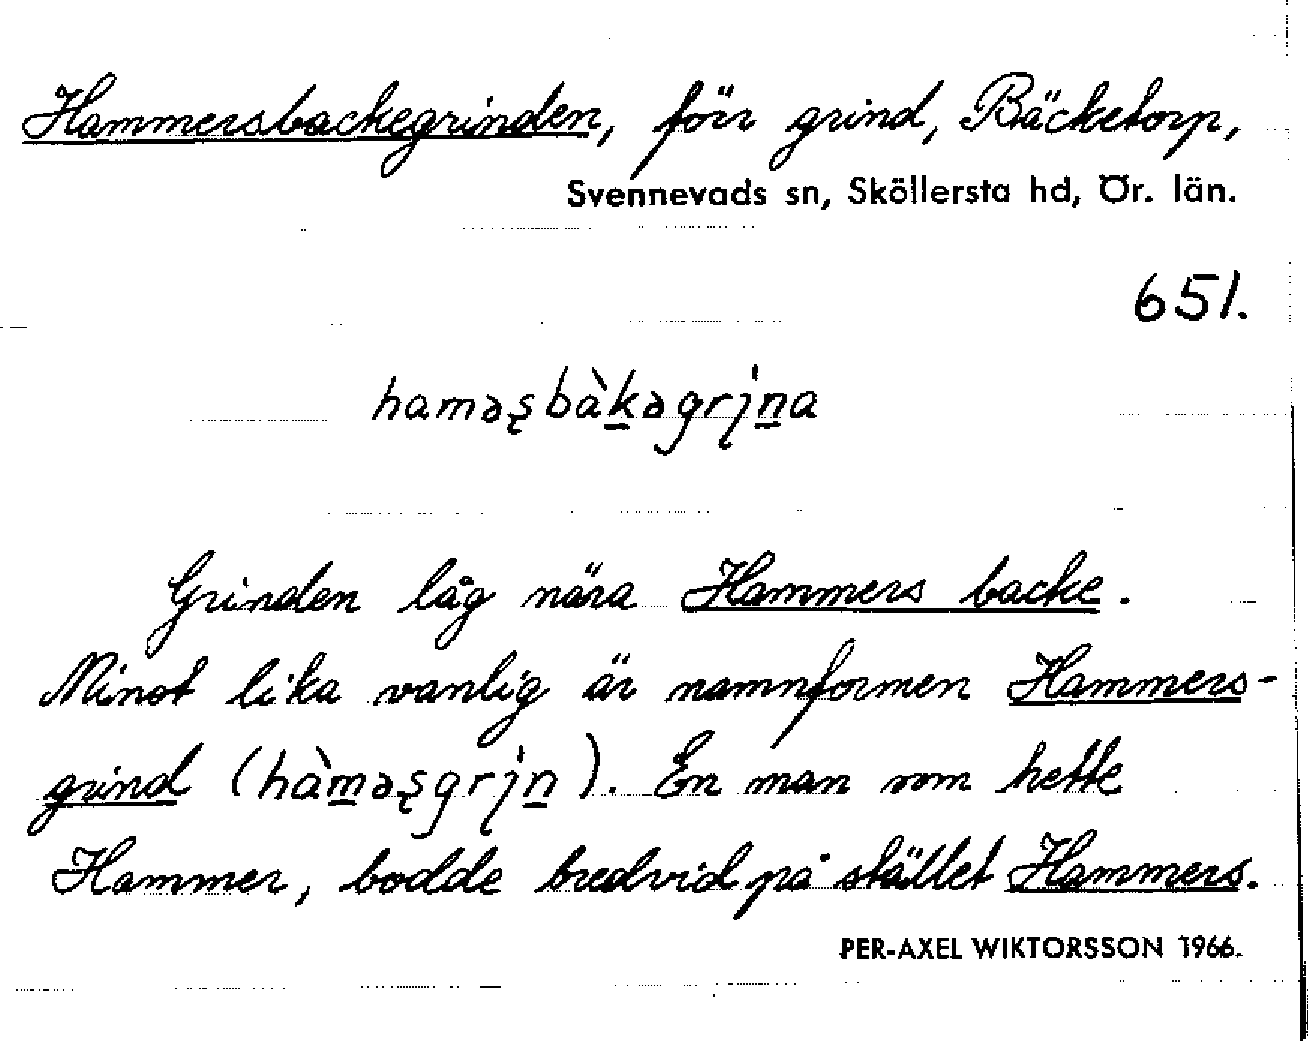 Hammersbackegrinden, förr grind, Bäcketorp,
Svennevads sn, Sköllersta hd, Ör. län.
651.
haməʂbàk̠əgrı̨̍n̠a
Grinden låg nära Hammers backe.
Minst lika vanlig är namnformen Hammers-
grind (hàm̠əʂgrı̨̍n̠). En man som hette
Hammer, bodde bredvid på stället Hammers.
PER-AXEL WIKTORSSON 1966.